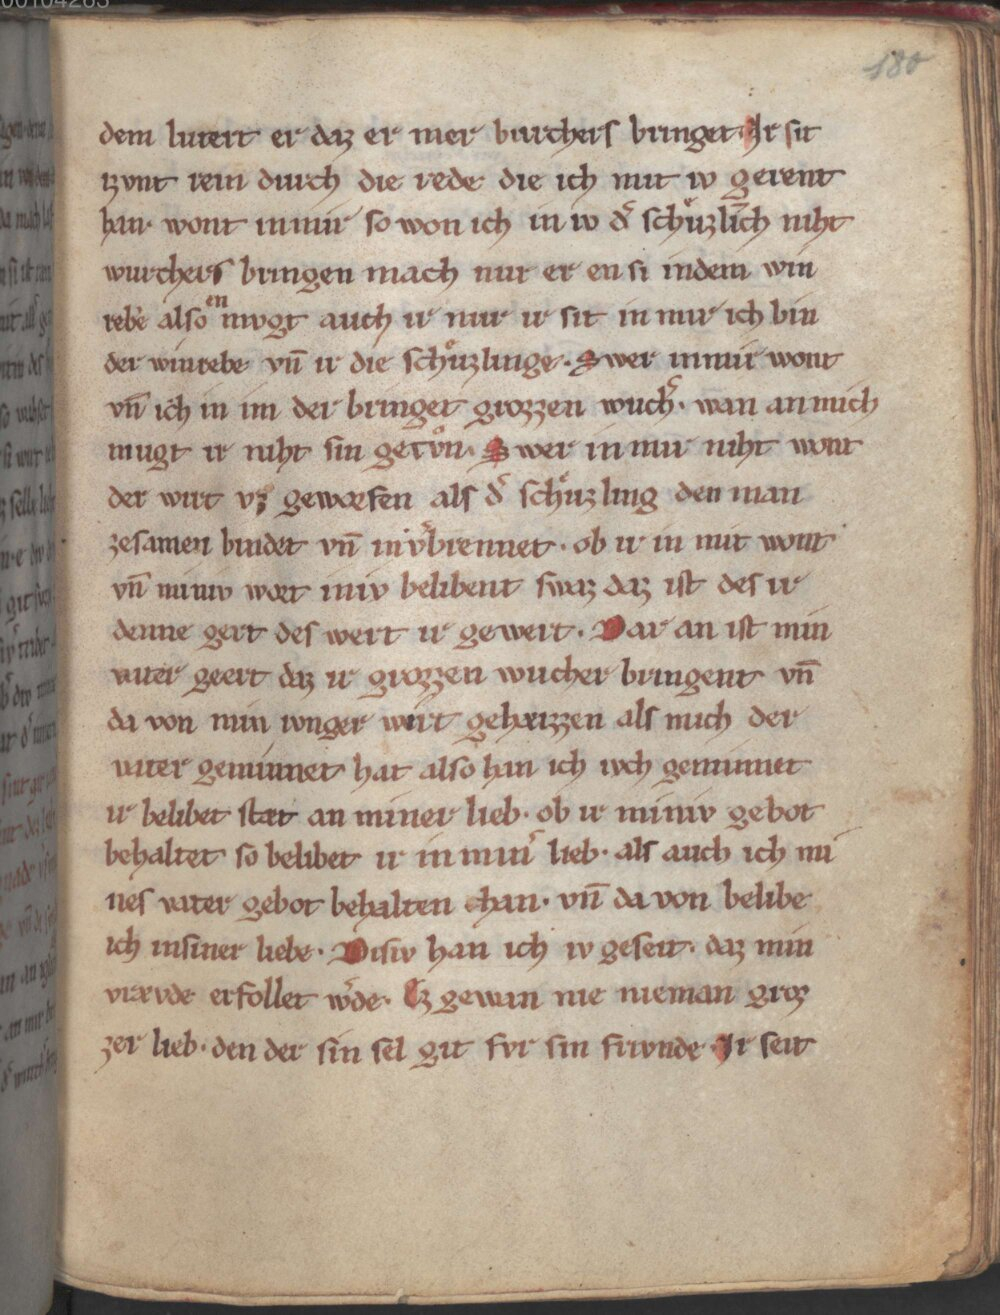 180
dem lutert er daz er mer wurchers bringet. Ir sit
itzvnt rein durch die rede die ich mit iv gereit
han. wont in mir so won ich in iv d͛ schvͦzlich niht
wurchers bringen mach nur er en si in dem win
rebe also en mvgt auch ir nur ir sit in mir ich bin
der winrebe vn̄ ir die schvͦzlinge. Swer in mir wont
vn̄ ich in im der bringet grozzen wuch͛. wan an mich
mugt ir niht sin getvͦn. Swer in mir niht wont
der wirt vz geworfen als d͛ schvͦzling den man
zesamen bindet vn̄ in v͛brennet. ob ir in mir wont
vn̄ miniv wort in iv belibent swaz daz ist des ir
denne gert des wert ir gewert. Dar an ist min
vater geert daz ir grozzen wucher bringent vn̄
da von min ivnger wert geheizzen als mich der
vater geminnet hat also han ich ivch geminnet
ir belibet stæt an miner lieb. ob ir miniv gebot
behaltet so belibet ir in min͛ lieb. als auch ich mi
nes vater gebot behalten han. vn̄ da von belibe
ich in siner liebe. Disiv han ich iv geseit. daz min
vrævde erfollet w͛de. Ez gewan nie nieman groz
zer lieb. den der sin sel git fvr sin frivnde. Ir seit